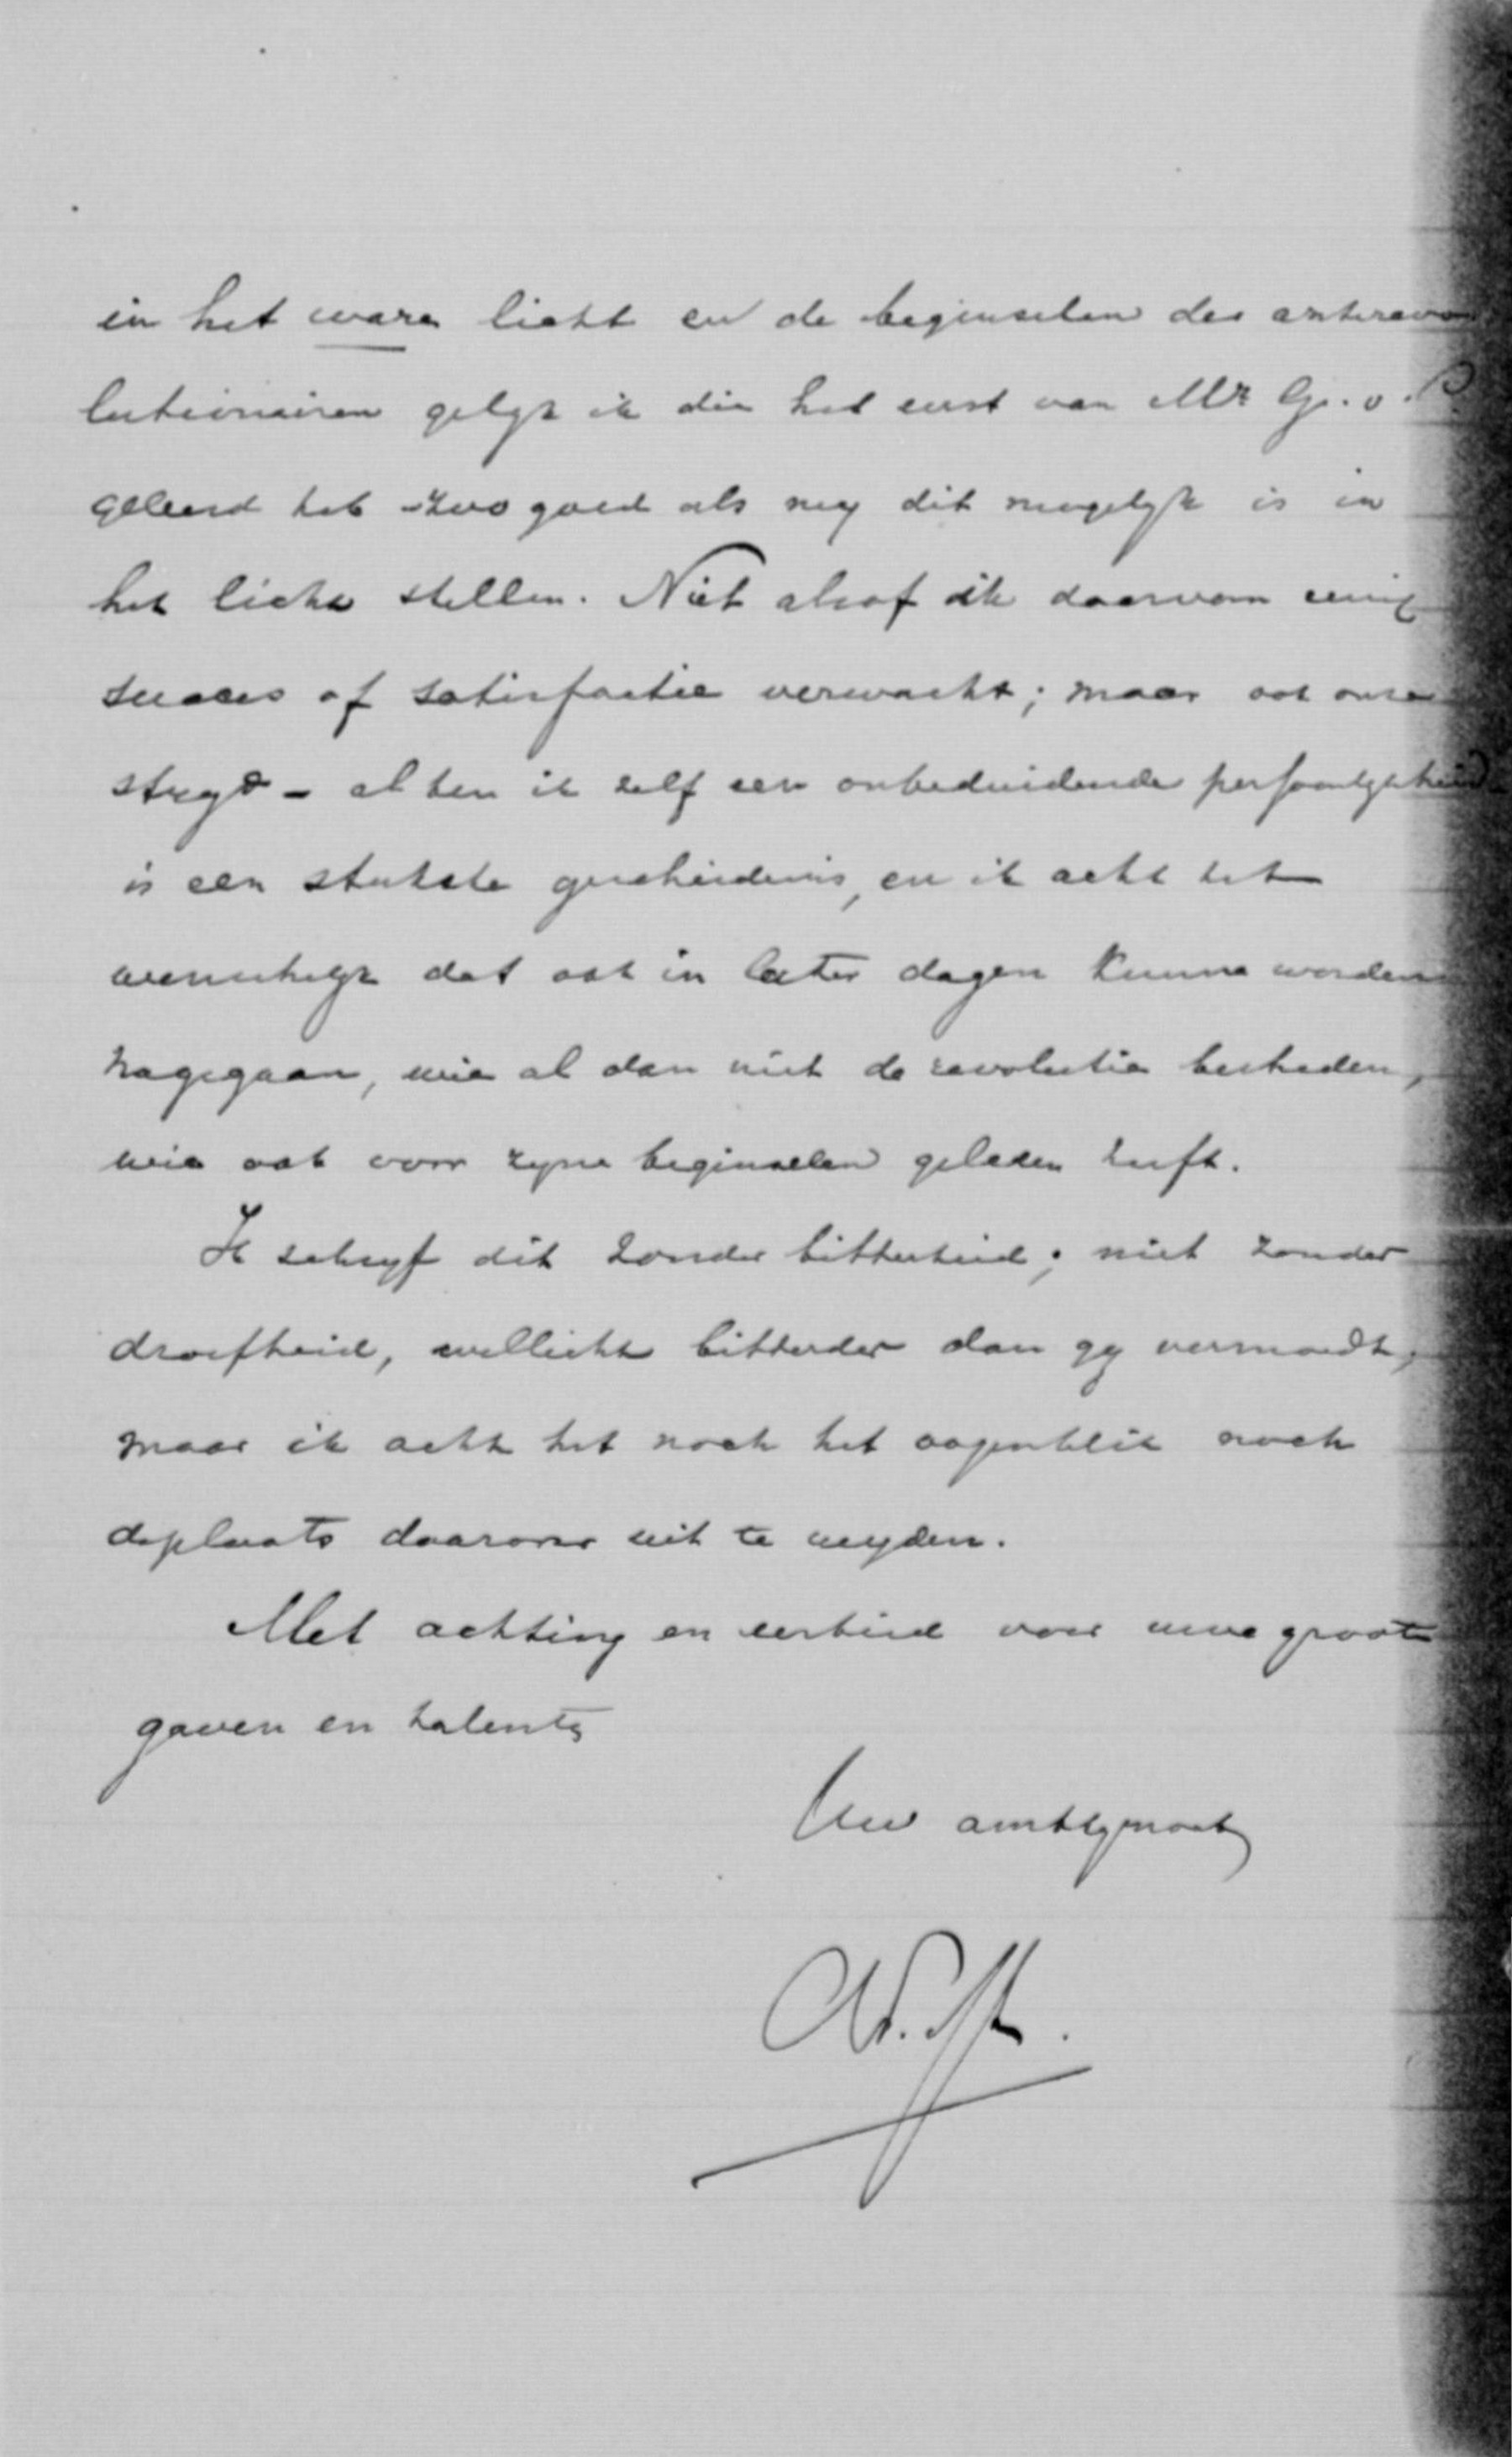 in het ware licht en de beginselen der antirevo
lutionairen gelijk ik die het eerst van Mr G. v. P.
geleerd heb zoo goed als mij dit mogelijk is in
het licht stellen. Niet alsof ik daarvan eenig
succes of satisfactie verwacht; maar ook onze
strijd – al ben ik zelf een onbeduidende persoonlijkheid
is een stukske geschiedenis, en ik acht het
wenschelijk dat ook in later dagen kunne worden
nagegaan, wie al dan niet de revolutie bestreden,
wie ook voor zijne beginselen geleden heeft.
Ik schrijf dit zonder bitterheid; niet zonder
droefheid, wellicht bitterder dan gij vermoedt,
maar ik acht het noch het oogenblik noch
de plaats daarover uit te weijden.
Met achting en eerbied voor uwe groote
gaven en talenten
Uw ambtgenoot